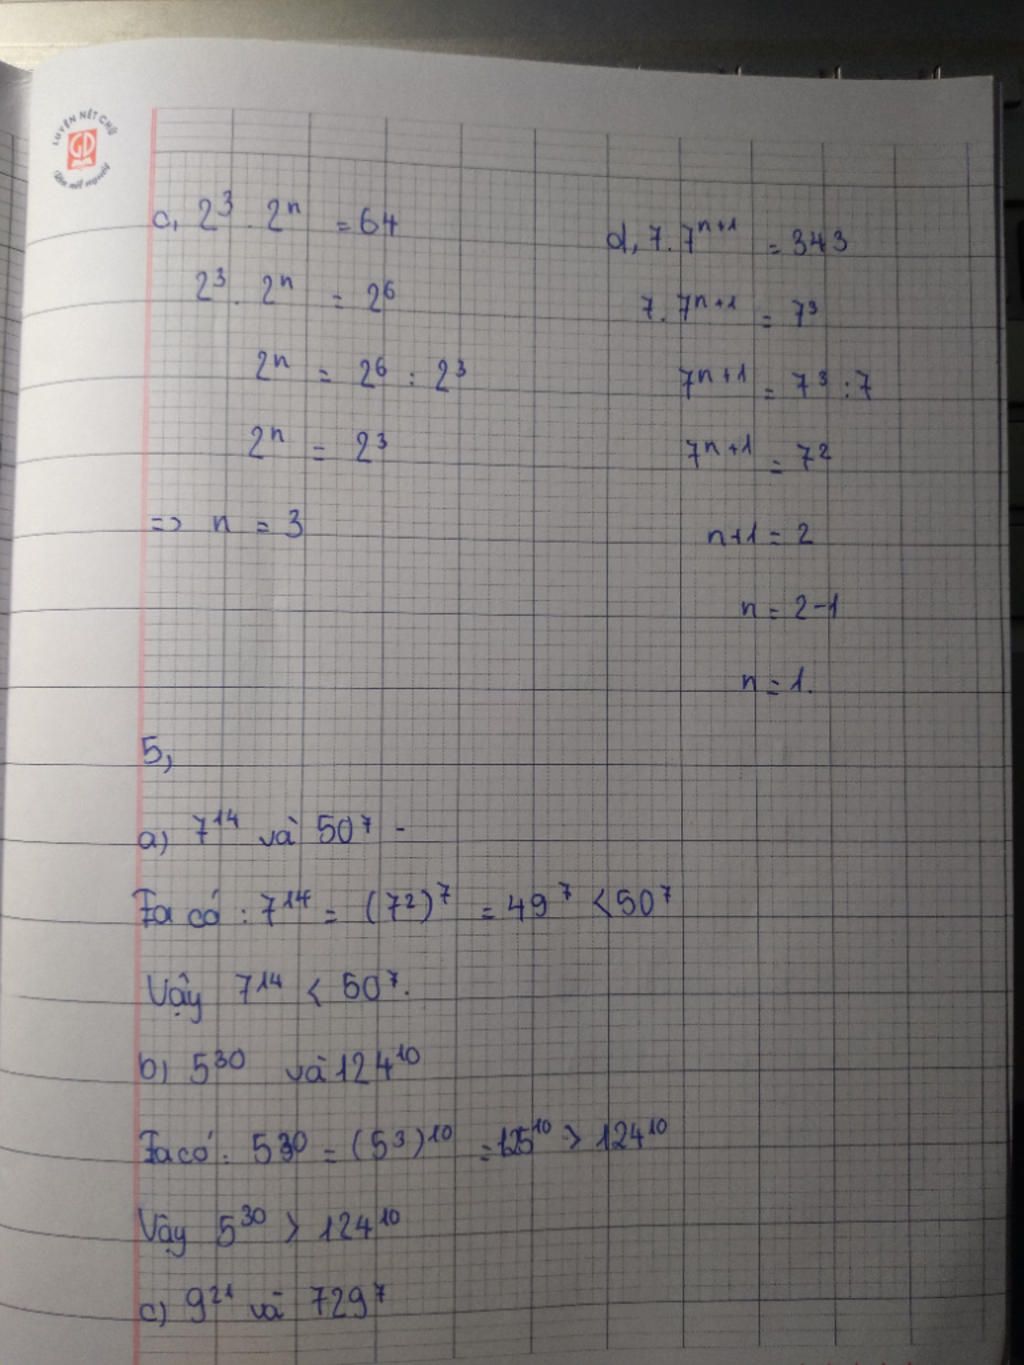 LUYỆN NÉT CHỮ
GD
Rèn nết người
c, 2³ . 2ⁿ = 64
2³ . 2ⁿ = 2⁶
2ⁿ = 2⁶ : 2³
2ⁿ = 2³
=> n = 3
d, 7 . 7ⁿ⁺¹ = 343
7 . 7ⁿ⁺¹ = 7³
7ⁿ⁺¹ = 7³ : 7
7ⁿ⁺¹ = 7²
n+1 = 2
n = 2-1
n = 1.
5,
a) 7¹⁴ và 50⁷ -
Ta có : 7¹⁴ = (7²)⁷ = 49⁷ < 50⁷
Vậy 7¹⁴ < 50⁷.
b) 5³⁰ và 124¹⁰
Ta có : 5³⁰ = (5³)¹⁰ = 125¹⁰ > 124¹⁰
Vậy 5³⁰ > 124¹⁰
c) 9²¹ và 729⁷